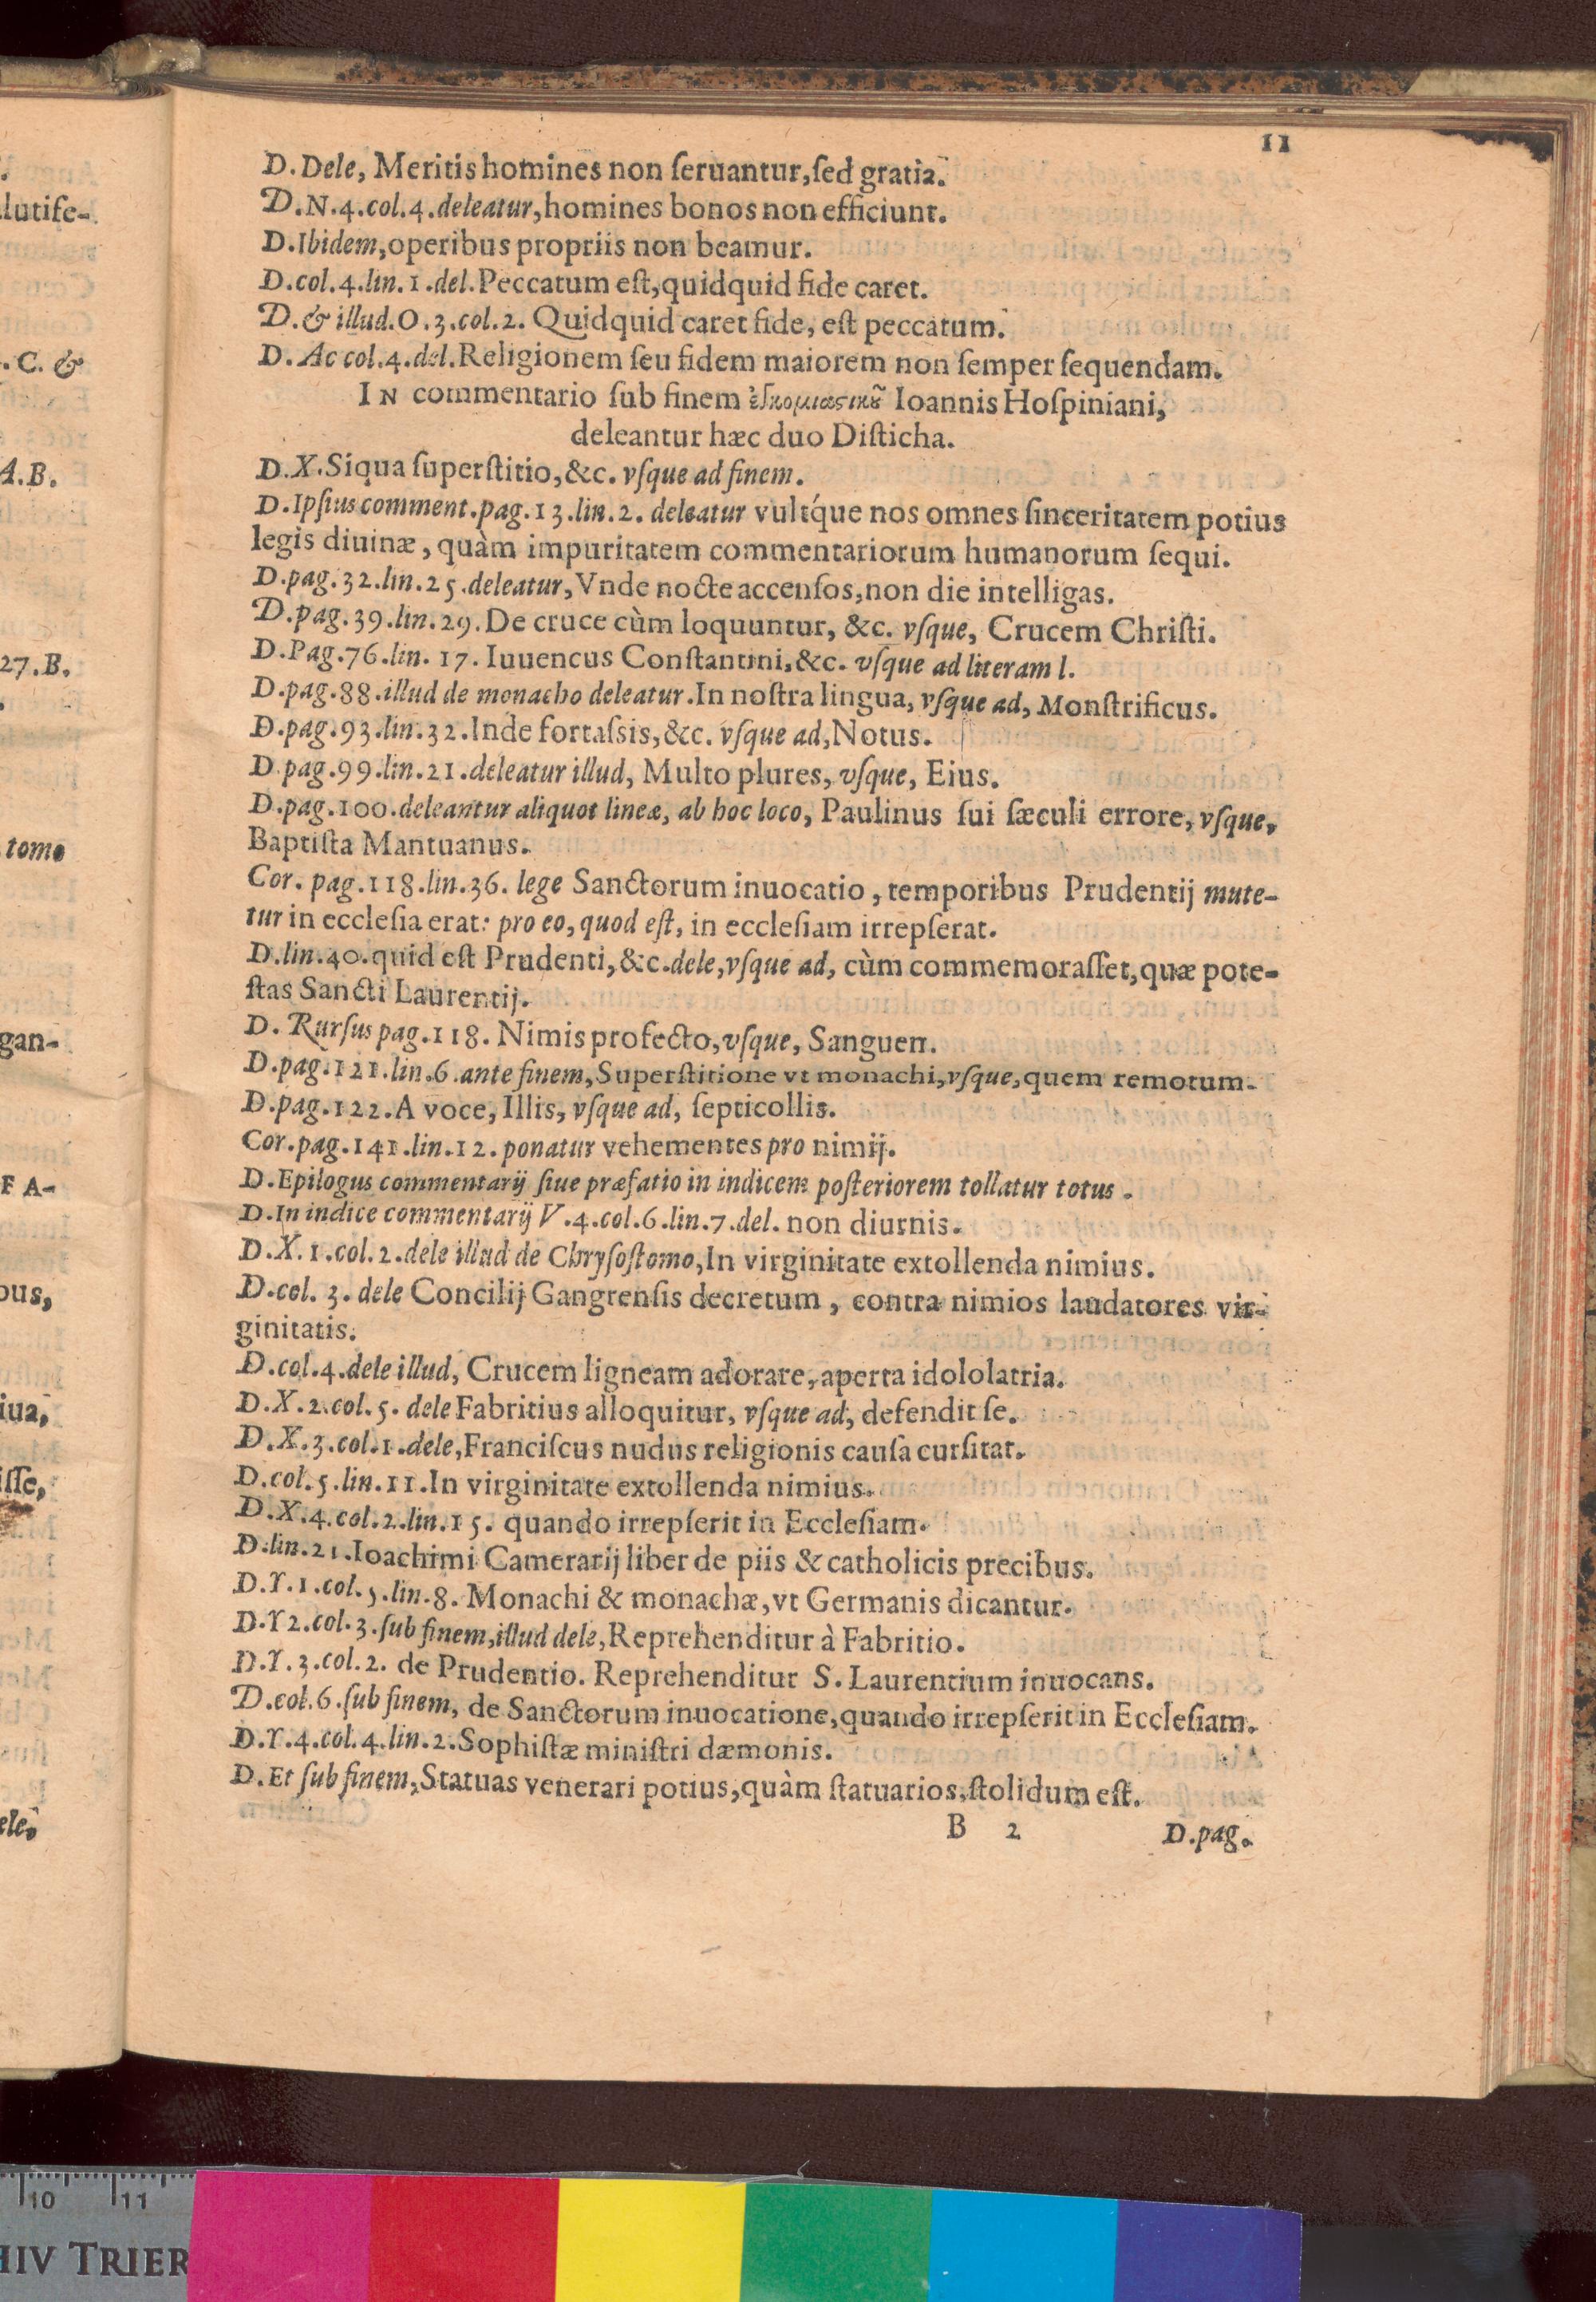 11
D. Dele, Meritis homines non ſeruantur, ſed gratia.
D. N. 4. col. 4. deleatur, homines bonos non efficiunt.
D. Ibidem, operibus propriis non beamur.
D. col. 4. lin. 1. del. Peccatum eſt, quidquid fide caret.
D. & illud. O. 3. col. 2. Quidquid caret fide, eſt peccatum.
D. Ac col. 4. del. Religionem ſeu fidem maiorem non ſemper ſequendam.
IN commentario ſub finem Ioannis Hoſpiniani,
deleantur hæc duo Diſticha.
D. X. Siqua ſuperſtitio, &c. vſque ad finem.
D. Ipſius comment. pag. 13. lin. 2. deleatur vultq́ue nos omnes ſinceritatem potius
legis diuinæ, quàm impuritatem commentariorum humanorum ſequi.
D. pag. 32. lin. 25. deleatur, Vnde nocte accenſos, non die intelligas.
D. pag. 39. lin. 29. De cruce cùm loquuntur, &c. vſque, Crucem Chriſti.
D. Pag. 76. lin. 17. Iuuencus Conſtantini, &c. vſque ad literam l.
D. pag. 88. illud de monacho deleatur. In noſtra lingua, vſque ad, Monſtrificus.
D. pag. 93. lin. 32. Inde fortaſsis, &c. vſque ad, Notus.
D pag. 99. lin. 21. deleatur illud, Multo plures, vſque, Eius.
D. pag. 100. deleantur aliquot lineæ, ab hoc loco, Paulinus ſui ſæculi errore, vſque,
Baptiſta Mantuanus.
Cor. pag. 118. lin. 36. lege Sanctorum inuocatio, temporibus Prudentij mute-
tur in eccleſia erat: pro eo, quod eſt, in eccleſiam irrepſerat.
D. lin. 40. quid eſt Prudenti, &c. dele, vſque ad, cùm commemoraſſet, quæ pote-
ſtas Sancti Laurentij.
D. Rurſus pag. 118. Nimis profecto, vſque, Sanguen.
D. pag. 121. lin. 6. ante finem, Superſtitione vt monachi, vſque, quem remotum.
D. pag. 122. A voce, Illis, vſque ad, ſepticollis.
Cor. pag. 141. lin. 12. ponatur vehementes pro nimij.
D. Epilogus commentarij ſiue præfatio in indicem poſteriorem tollatur totus.
D. In indice commentarij V. 4. col. 6. lin. 7. del. non diurnis.
D. X. 1. col. 2. dele illud de Chryſoſtomo, In virginitate extollenda nimius.
D. col. 3. dele Concilij Gangrenſis decretum, contra nimios laudatores vir-
ginitatis.
D. col. 4. dele illud, Crucem ligneam adorare, aperta idololatria.
D. X. 2. col. 5. dele Fabritius alloquitur, vſque ad, defendit ſe.
D. X. 3. col. 1. dele, Franciſcus nudus religionis cauſa curſitat.
D. col. 5. lin. 11. In virginitate extollenda nimius.
D. X. 4. col. 2. lin. 15. quando irrepſerit in Eccleſiam.
D. lin. 21. Ioachimi Camerarij liber de piis & catholicis precibus.
D. Y. 1. col. 5. lin. 8. Monachi & monachæ, vt Germanis dicantur.
D. Y 2. col. 3. ſub finem, illud dele, Reprehenditur à Fabritio.
D. Y. 3. col. 2. de Prudentio. Reprehenditur S. Laurentium inuocans.
D. col. 6. ſub finem, de Sanctorum inuocatione, quando irrepſerit in Eccleſiam.
D. Y. 4. col. 4. lin. 2. Sophiſtæ miniſtri dæmonis.
D. Et ſub finem, Statuas venerari potius, quàm ſtatuarios, ſtolidum eſt.
B 2 D. pag.
lutife-
. C. &
A. B.
27. B.
tomo
gan-
F A-
ous,
iua,
iſſe,
ele,
10 11
HIV TRIER